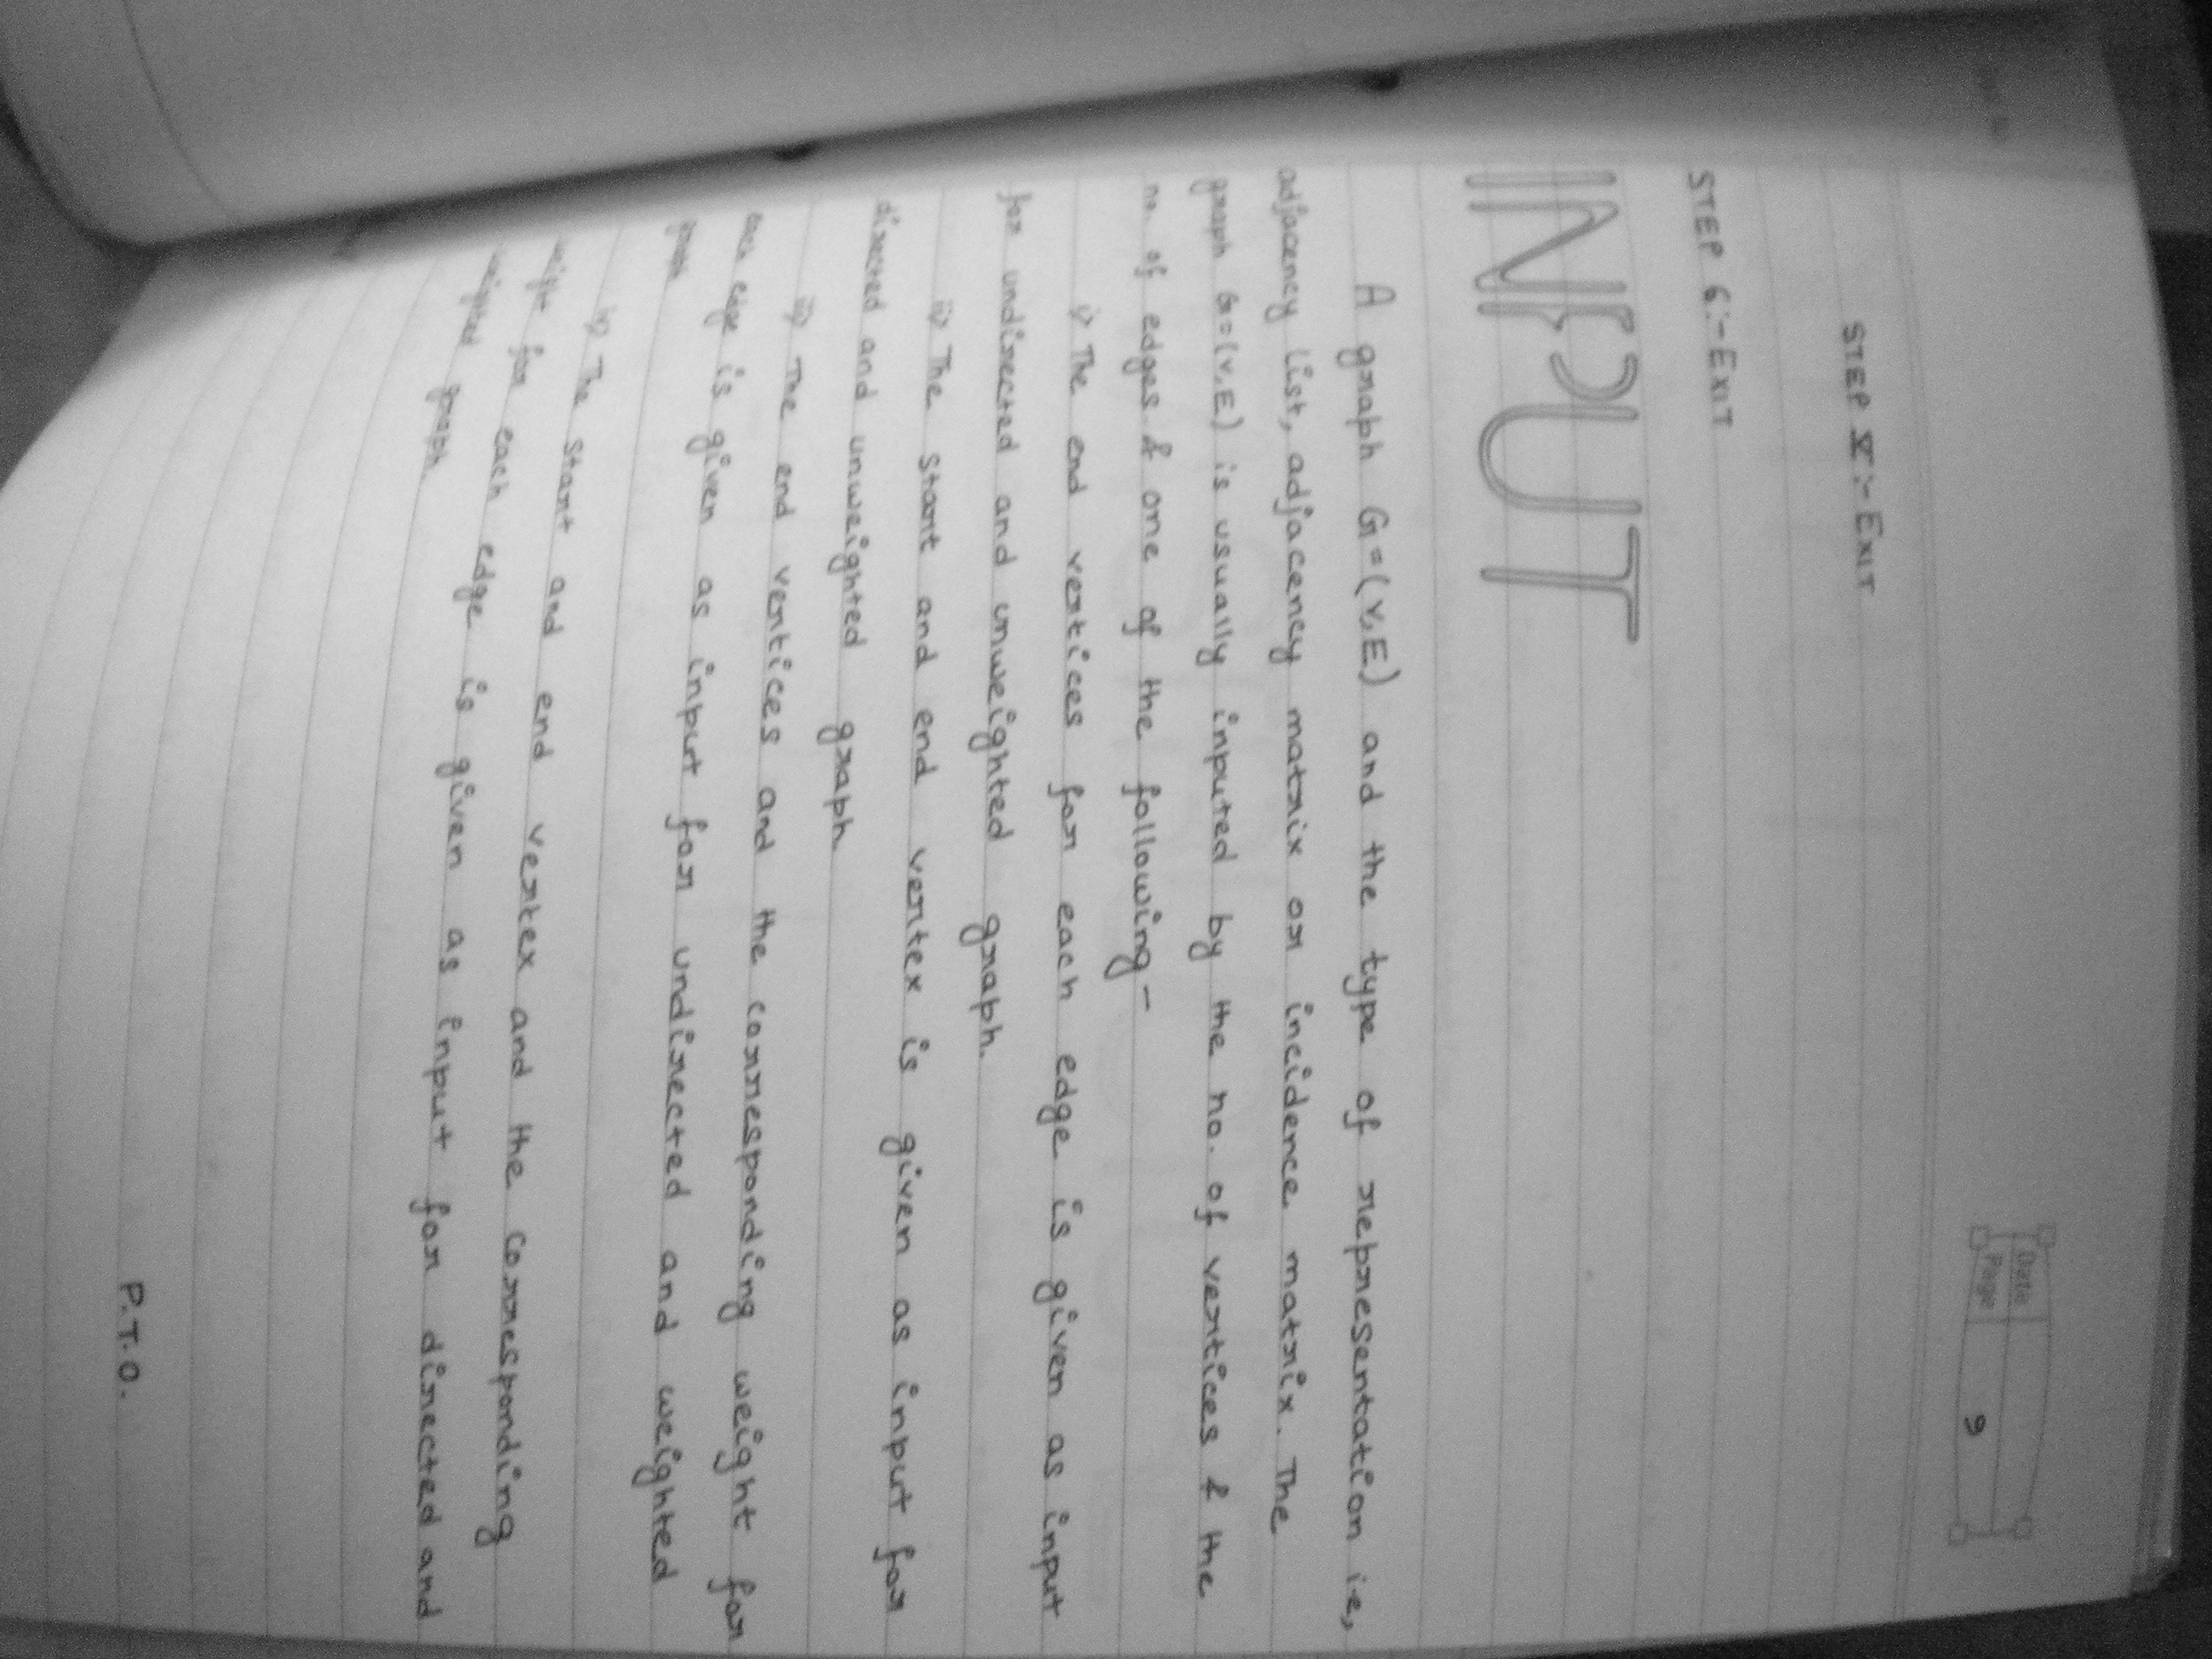 Date
Page 9
STEP V:- EXIT
STEP 6:- EXIT
INPUT
A graph G=(V,E) and the type of representation i.e,
adjacency list, adjacency matrix or incidence matrix. The
graph G=(V,E) is usually inputed by the no. of vertices & the
no. of edges & one of the following-
i) The end vertices for each edge is given as input
for undirected and unweighted graph.
ii) The start and end vertex is given as input for
directed and unweighted graph.
iii) The end vertices and the corresponding weight for
each edge is given as input for undirected and weighted
graph
iv) The start and end vertex and the corresponding
weight for each edge is given as input for directed and
weighted graph.
P.T.O.